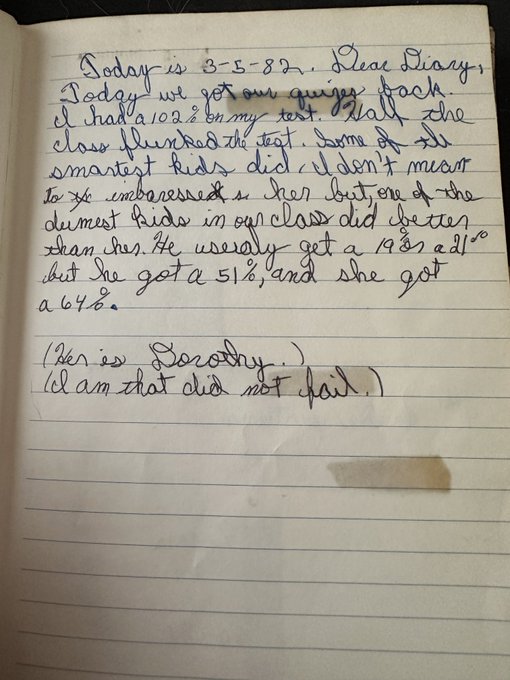 Today is 3-5-82. Dear Diary,
Today we got our quizes back.
I had a 102% on my test. Half the
class flunked the test. Some of the
smartest kids did. I don't mean
to imbaressed her but, one of the
dumest kids in our class did better
than her. He usealy get a 19% or a 21%
but he got a 51%, and she got
a 64%.
(Her is Dorothy.)
(I am that did not fail.)